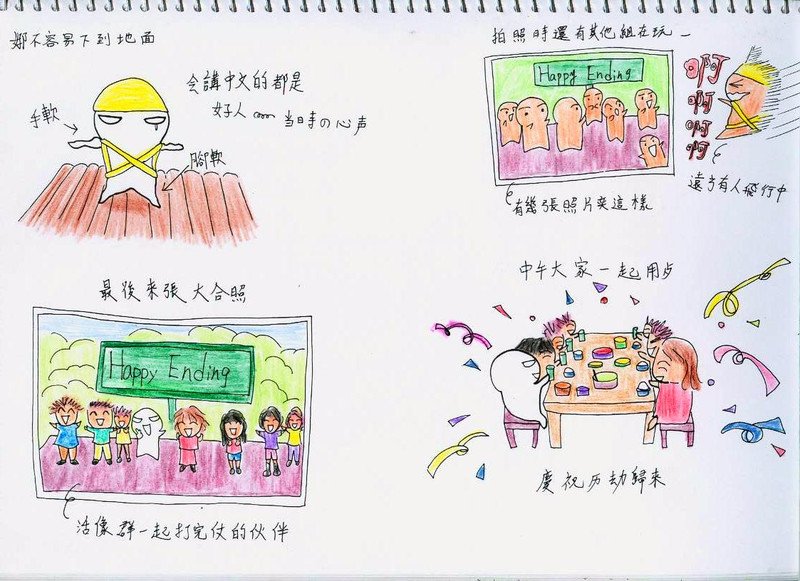 好不容易下到地面
会講中文的都是
好人
当日時の心声
手軟
腳軟
拍照時還有其他組在玩
Happy Ending
啊
啊
啊
啊
遠方有人飛行中
有幾張照片变這樣
最後來張大合照
Happy Ending
活像群一起打完仗的伙伴
中午大家一起用歺
慶祝历劫歸來